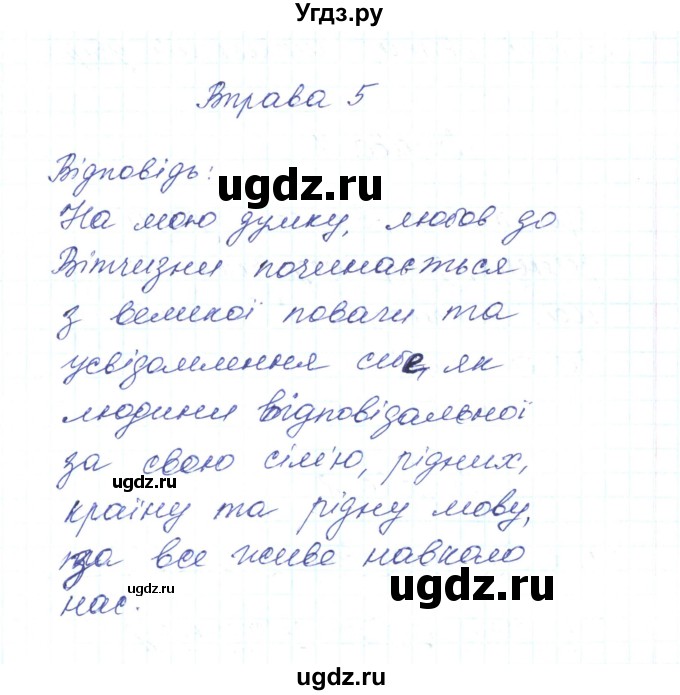 Угдз.ру
Вправа 5
Відповідь:
ugdz.ru
На мою думку, любов до
Вітчизни починається
з великої поваги та
ugdz.ru
усвідомлення себе, як
людини відповідальної
за свою сім'ю, рідних,
ugdz.ru
країну та рідну мову,
за все живе навколо
ugdz.ru
ugdz.ru
нас.
ugdz.ru